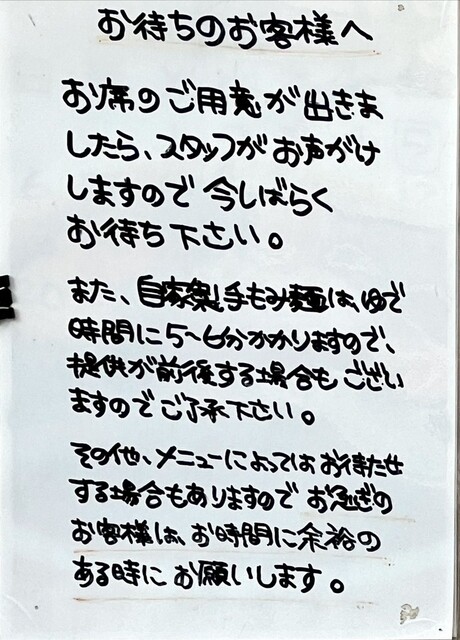 お待ちのお客様へ
お席のご用意が出きま
したら、スタッフがお声がけ
しますので今しばらく
お待ち下さい。
また、自家製手もみ麺は、ゆで
時間に5〜6分かかりますので、
提供が前後する場合もござい
ますのでご了承下さい。
その他、メニューによってはお待たせ
する場合もありますのでお急ぎの
お客様は、お時間に余裕の
ある時にお願いします。